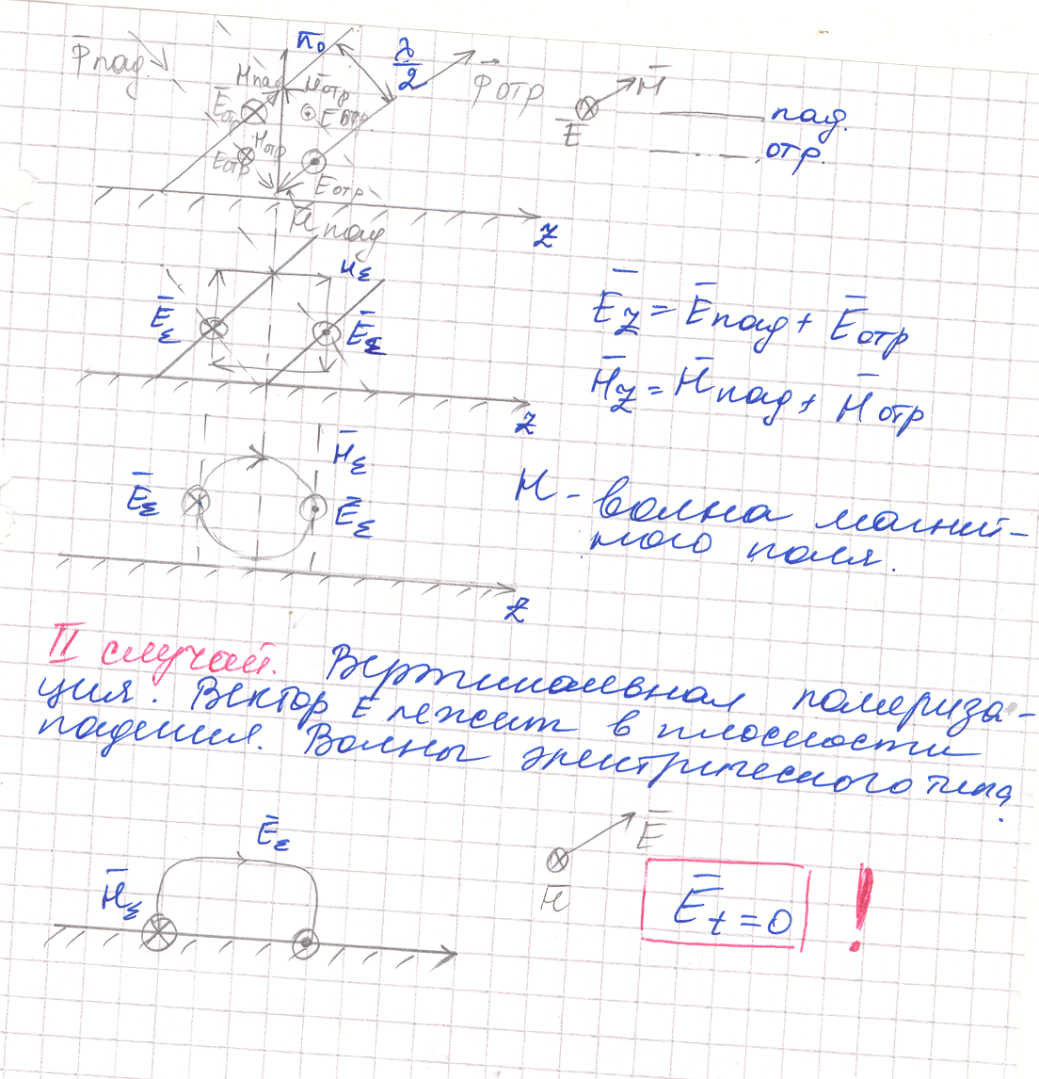 P̄пад. П₀ λ/2 P̄отр H̄
H̄пад H̄отр
Ēотр Ē отр. Ē пад.
H̄отр отр.
Ēотр Ēотр
H̄пад z
H̄Σ
ĒΣ ĒΣ Ēz = Ēпад + Ēотр
H̄z = H̄пад + H̄отр
z
H̄Σ
ĒΣ ĒΣ H - волна магнит-
ного поля.
z
II случай. Вертикальная поляриза-
ция. Вектор E лежит в плоскости
падения. Волны электрического типа.
ĒΣ Ē
H̄Σ H̄ Ēt = 0 !